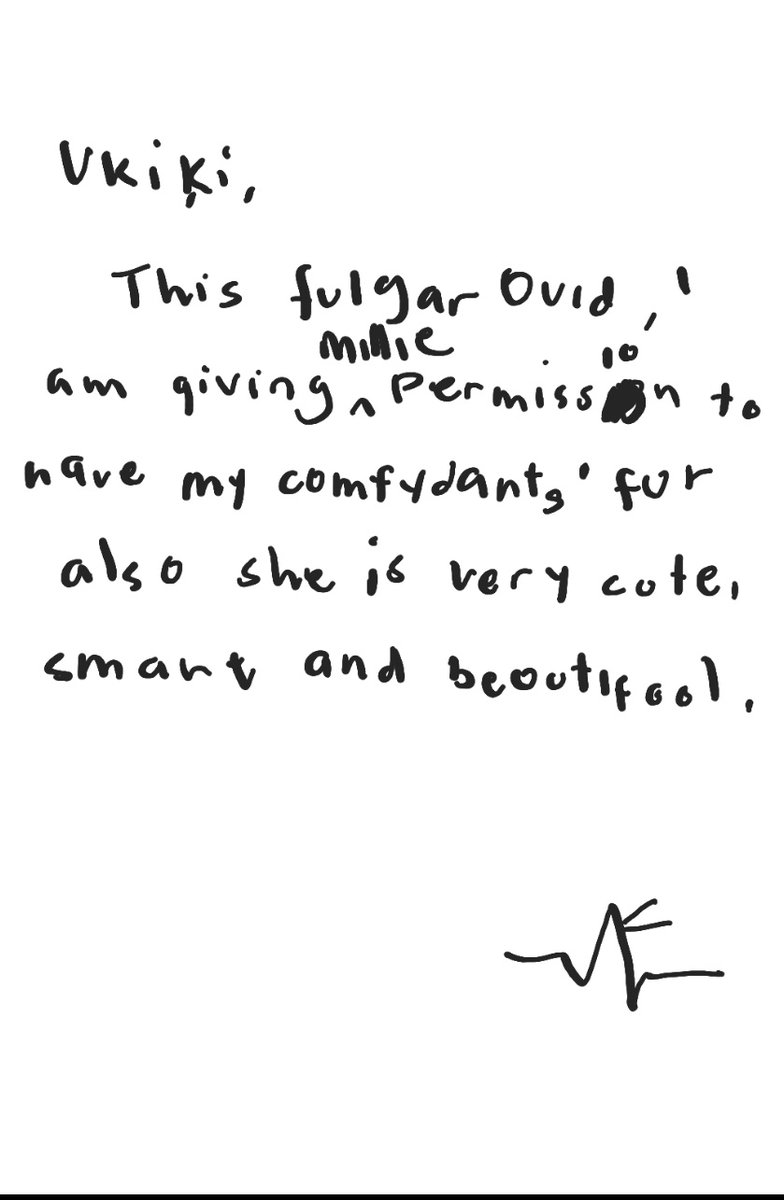 Vkiķi,
This fulgar Ovid, I
am giving ^ millie permission to
have my comfydants' fur
also she is very cute,
smart and beoutifool.